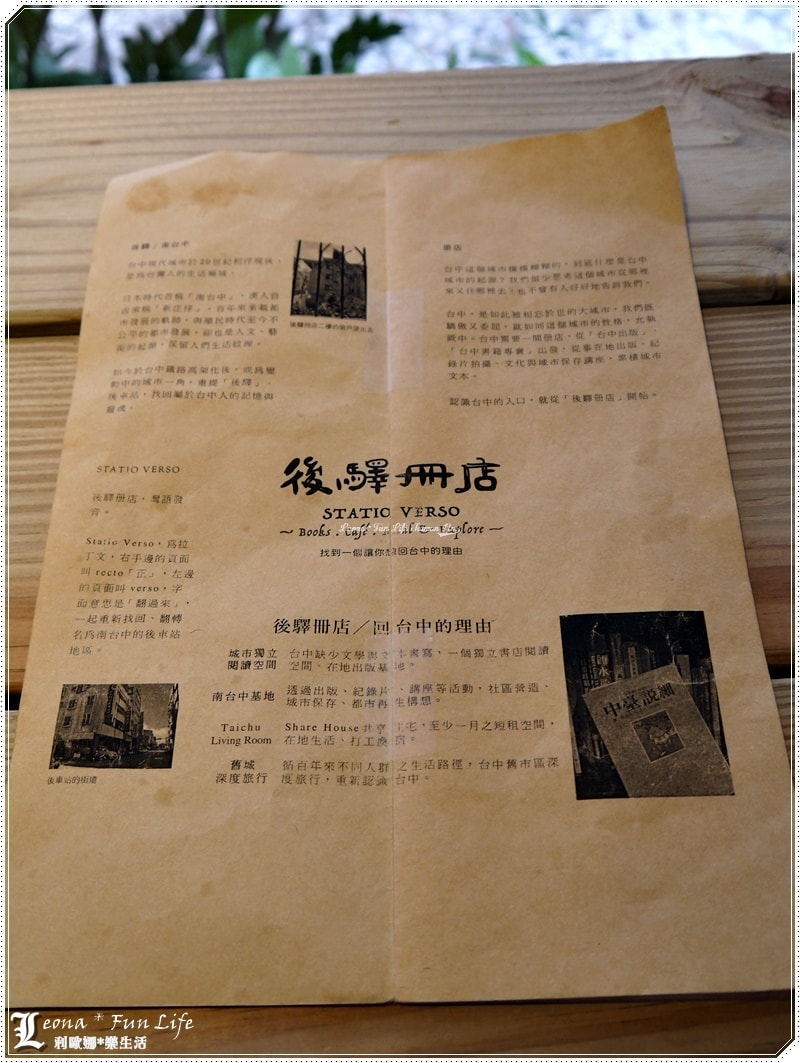 後驛／南台中
台中現代城市於20世紀初浮現後，
是為台灣人的生活場域。
日本時代首稱「南台中」，漢人自
古來稱「新庄仔」，百年來承載都
市發展的軌跡，與殖民時代至今不
公平的都市發展，卻也是人文、藝
術的起源，保留人們生活紋理。
如今於台中鐵路高架化後，成為變
動中的城市一角，重提「後驛」，
後車站，找回屬於台中人的記憶與
靈魂。
冊店
台中這個城市模模糊糊的，到底什麼是台中
城市的起源？我們很少思考這個城市從哪裡
來又往哪裡去，也不曾有人好好地告訴我們。
台中，是如此被相忘於世的大城市，我們既
驕傲又委屈，就如同這個城市的性格，允執
厥中。台中需要一間冊店，從「台中出版」、
「台中書籍專賣」出發，從事在地出版、紀
錄片拍攝、文化與城市保存講座，累積城市
文本。
認識台中的入口，就從「後驛冊店」開始。
STATIO VERSO
後驛冊店，灣語發
音。
Statio Verso，為拉
丁文，右手邊的頁面
叫recto「正」，左邊
的頁面叫verso，字
面意思是「翻過來」，
一起重新找回、翻轉
名為南台中的後車站
地區。
後車站的街道
後驛冊店
STATIO VERSO
～ Books . Café .
找到一個讓你想回台中的理由
後驛冊店／回台中的理由
城市獨立 台中缺少文學與文本書寫，一個獨立書店閱讀
閱讀空間 空間、在地出版基地。
南台中基地 透過出版、紀錄片、講座等活動，社區營造、
城市保存、都市再生構想。
Taichu Share House共享住宅，至少一月之短租空間，
Living Room 在地生活、打工換宿。
舊城 循百年來不同人群之生活路徑，台中舊市區深
深度旅行 度旅行，重新認識台中。
中臺說細
Leona * Fun Life
利歐娜*樂生活